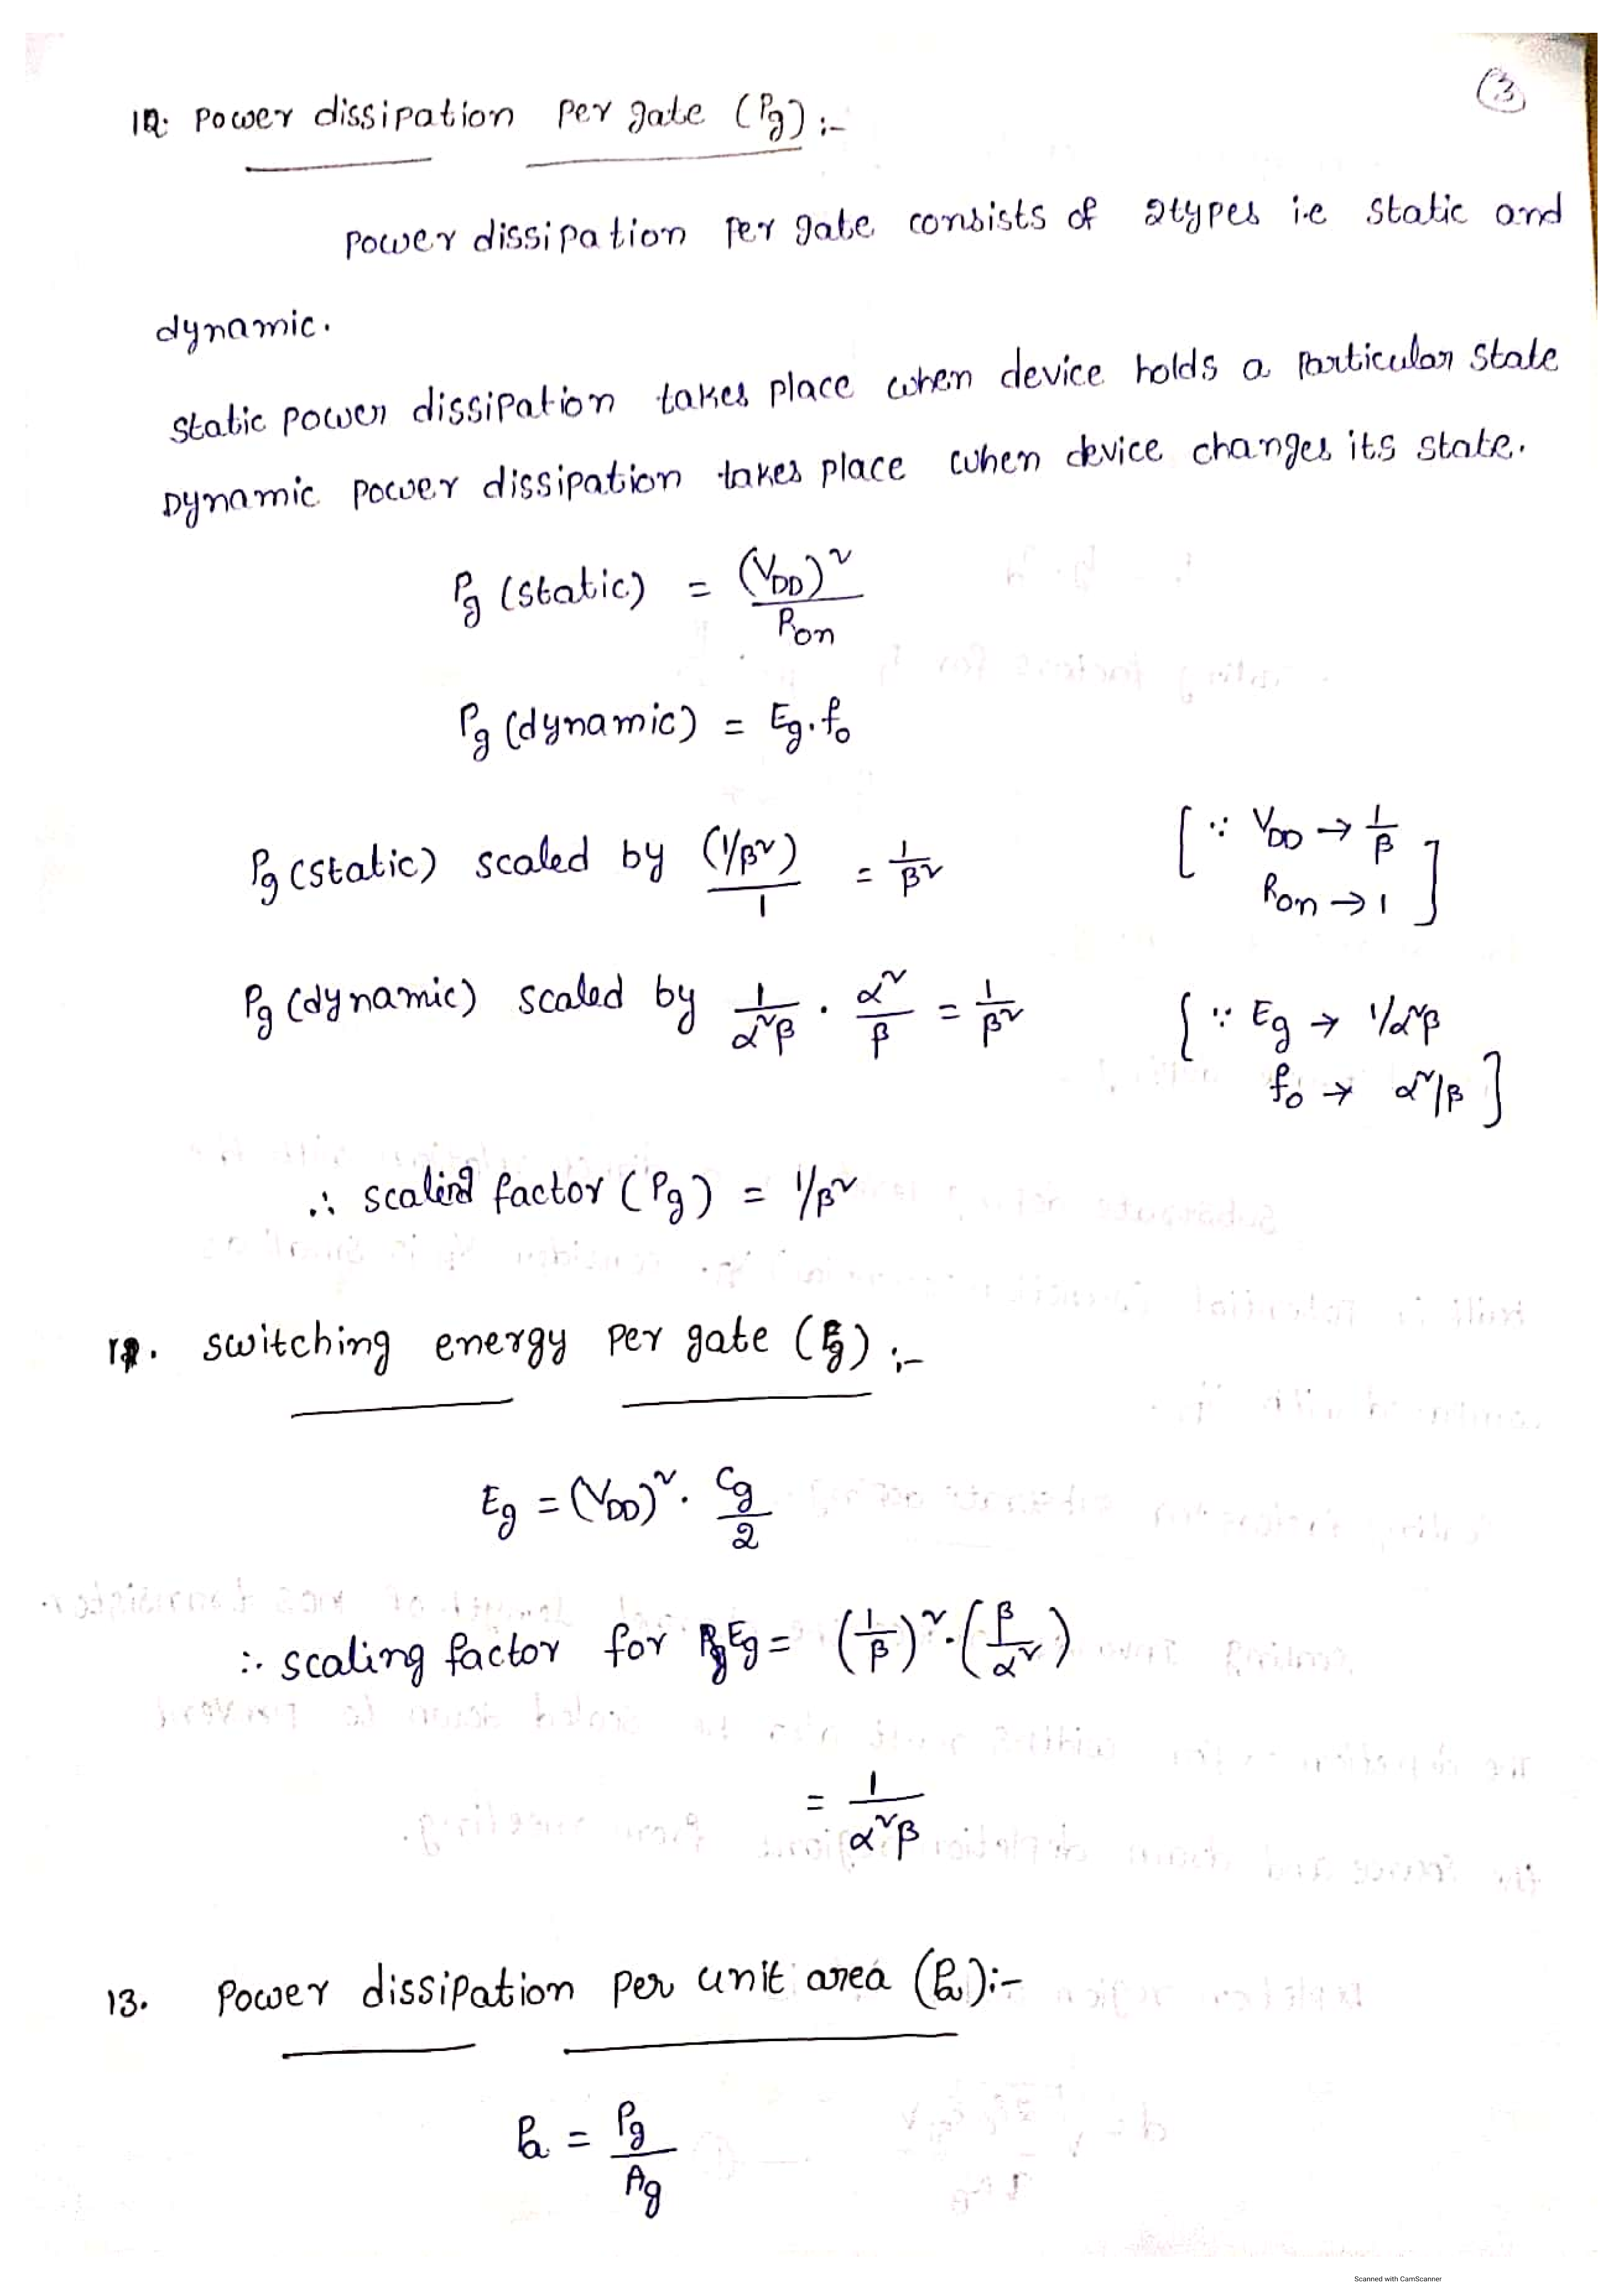 ③
12. Power dissipation per gate (Pg) :-
Power dissipation per gate consists of 2types i.e static and
dynamic.
static power dissipation takes place when device holds a particular state
Dynamic power dissipation takes place when device changes its state.
Pg (static) = (VDD)² / Ron
Pg (dynamic) = Eg . f₀
Pg (static) scaled by (1/β²) / 1 = 1/β² [∵ VDD → 1/β
Ron → 1]
Pg (dynamic) scaled by 1/α²β . α²/β = 1/β² [∵ Eg → 1/α²β
f₀ → α²/β]
∴ scaling factor (Pg) = 1/β²
switching energy per gate (Eg) :-
Eg = (VDD)² . Cg/2
∴ scaling factor for Eg = (1/β)² . (β/α²)
= 1/α²β
13. Power dissipation per unit area (Pa) :-
Pa = Pg / Ag
Scanned with CamScanner